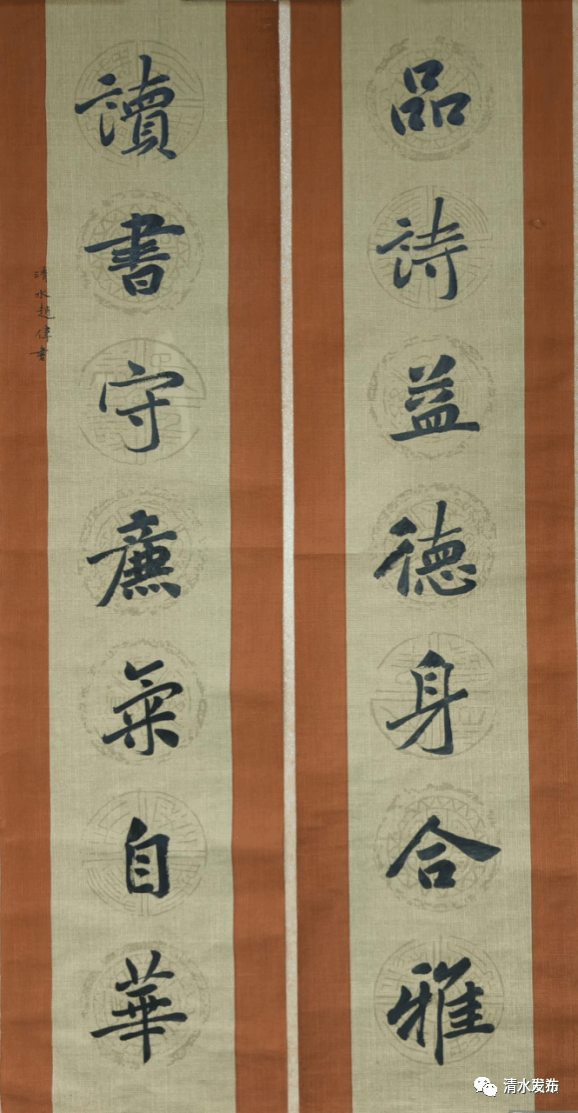 品詩益德身合雅
讀書守廉氣自華
清水趙偉書
清水发布